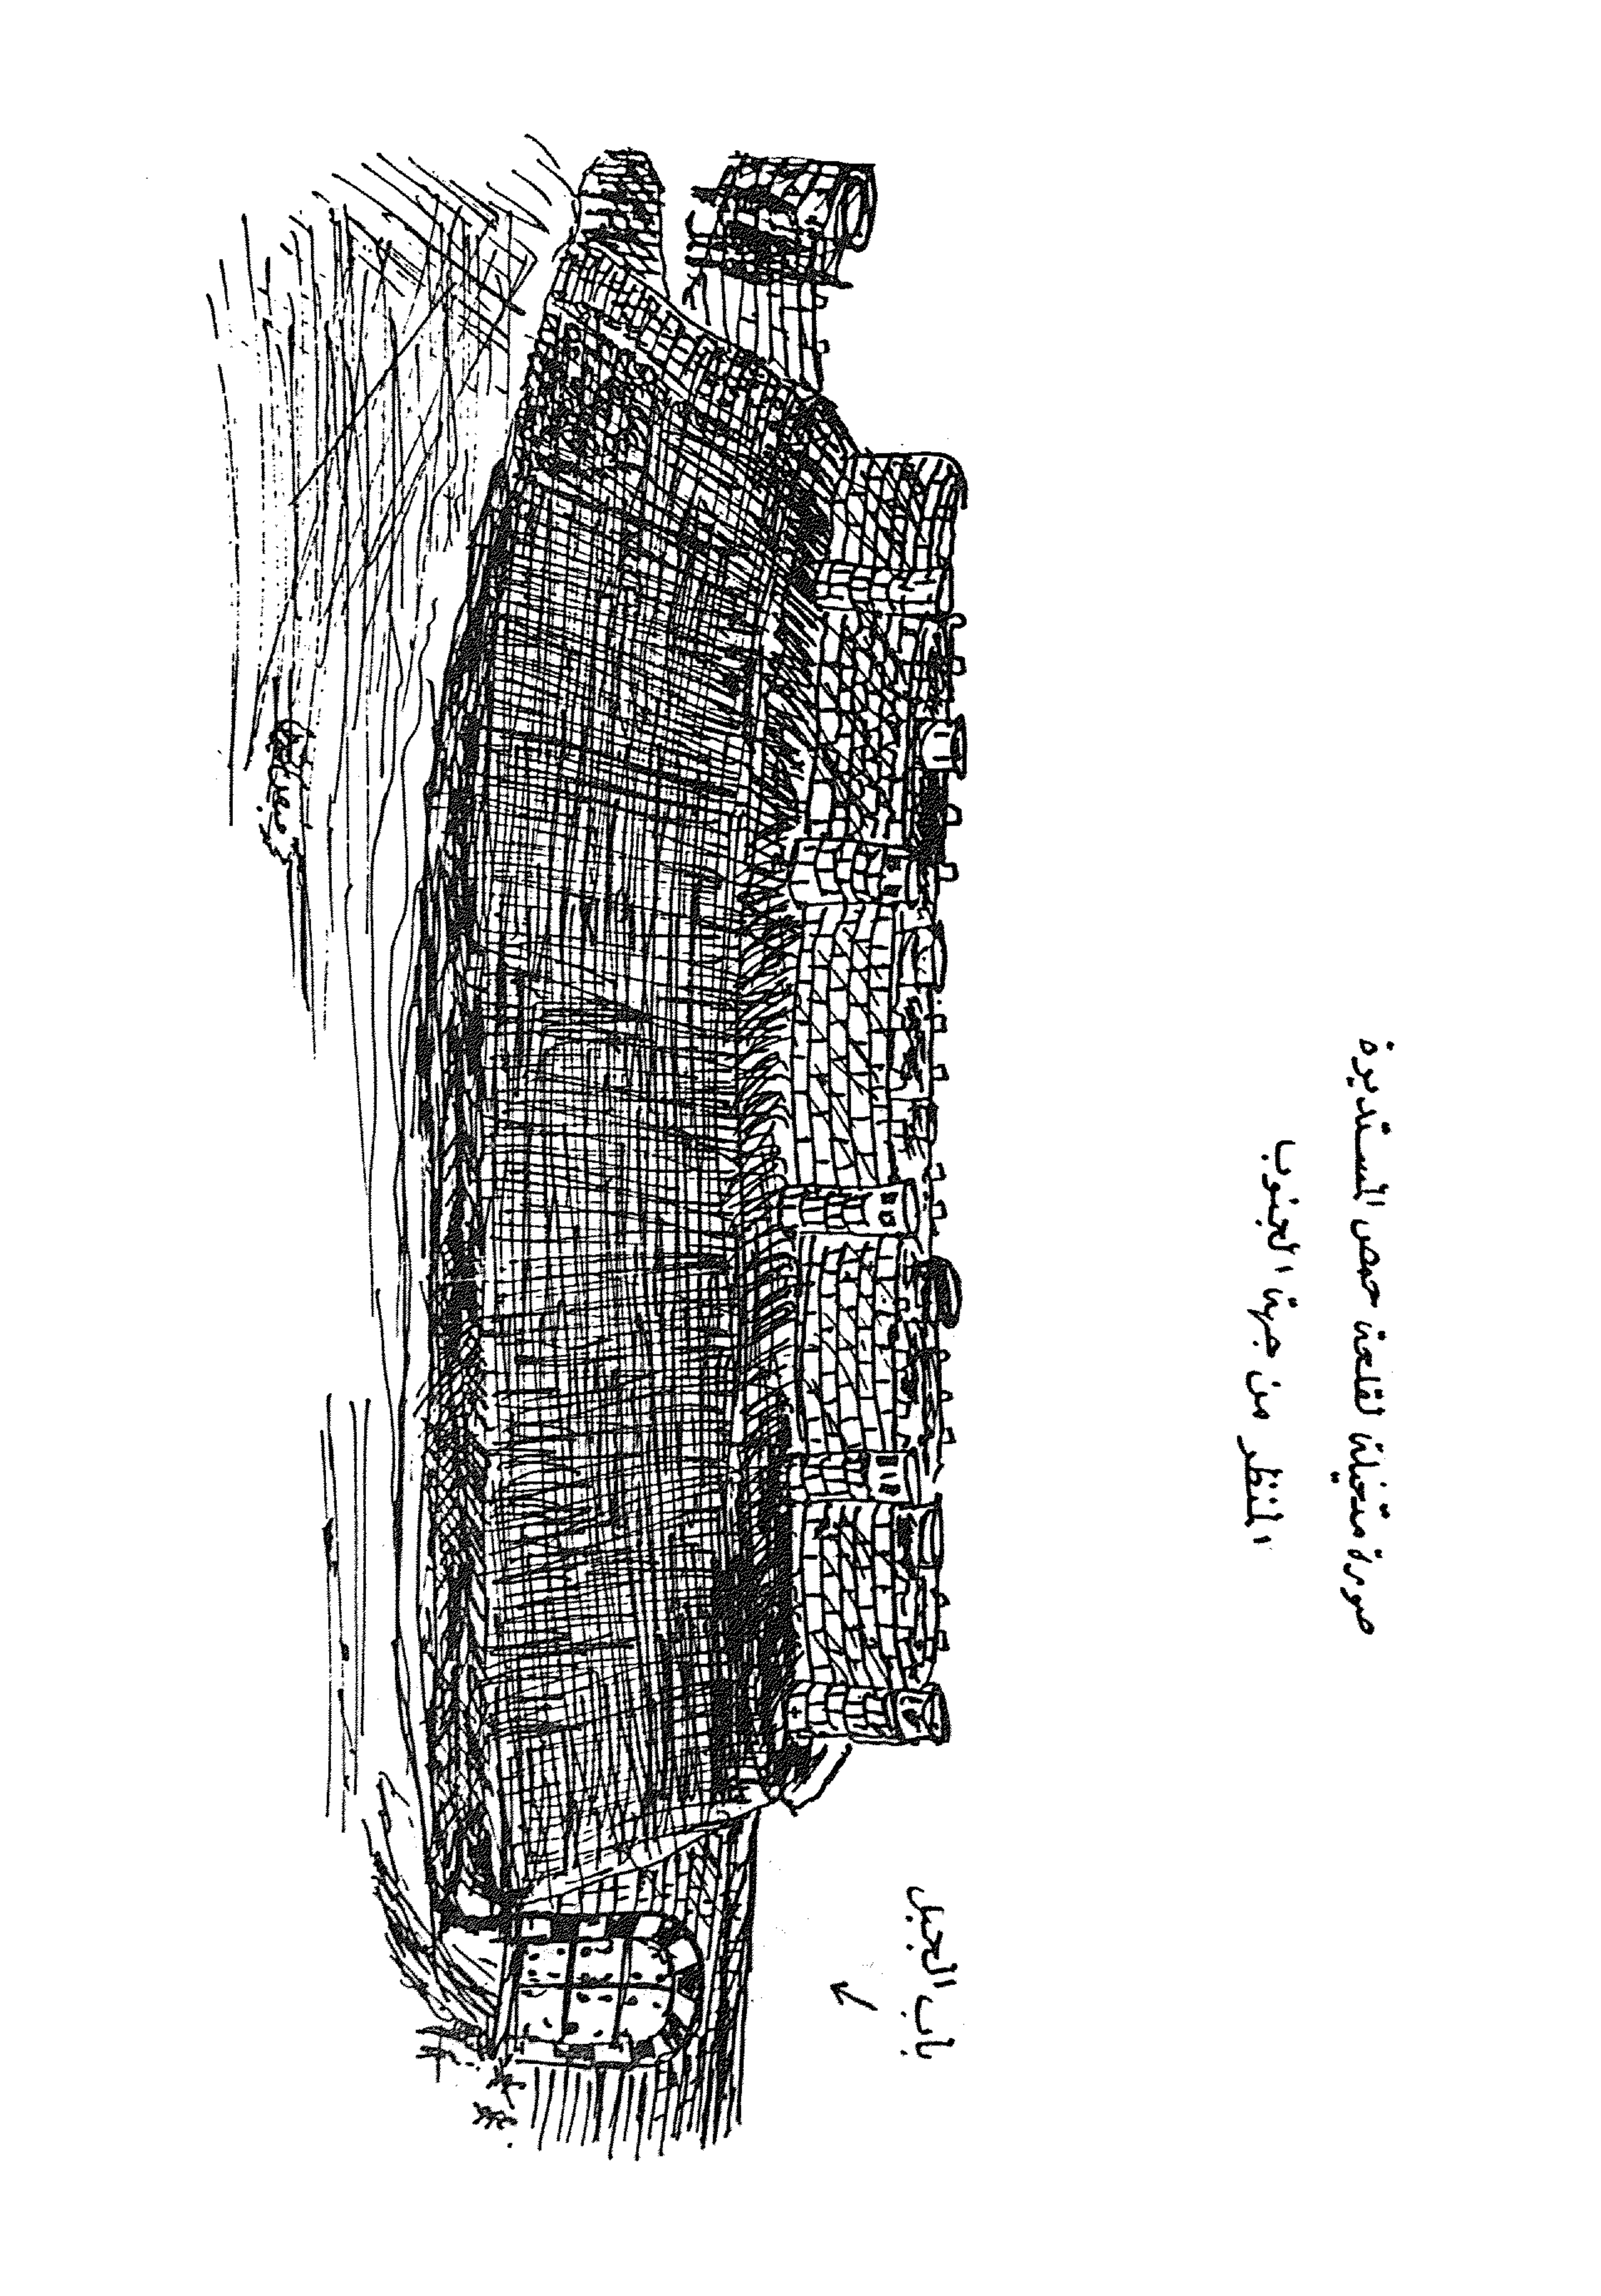 صورة متخيلة لقلعة حمص المستديرة
المنظر من جهة الجنوب
باب الجبل